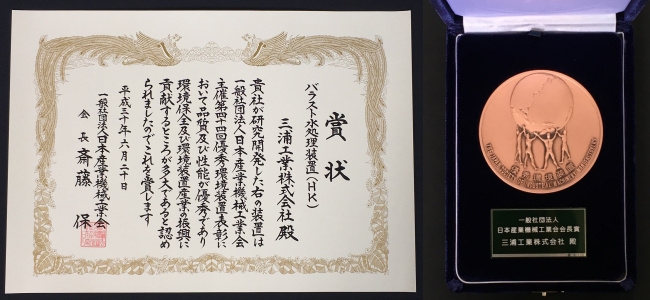 賞状
バラスト水処理装置(HK)
三浦工業株式会社 殿
貴社が研究開発した右の装置は
一般社団法人日本産業機械工業会
主催第四十四回優秀環境装置表彰に
おいて品質及び性能が優秀であり
環境保全及び環境装置産業の振興に
貢献するところが多大であると認め
られましたのでこれを賞します
平成三十年六月二十日
一般社団法人日本産業機械工業会
会長 斎藤 保
一般社団法人
日本産業機械工業会会長賞
三浦工業株式会社 殿